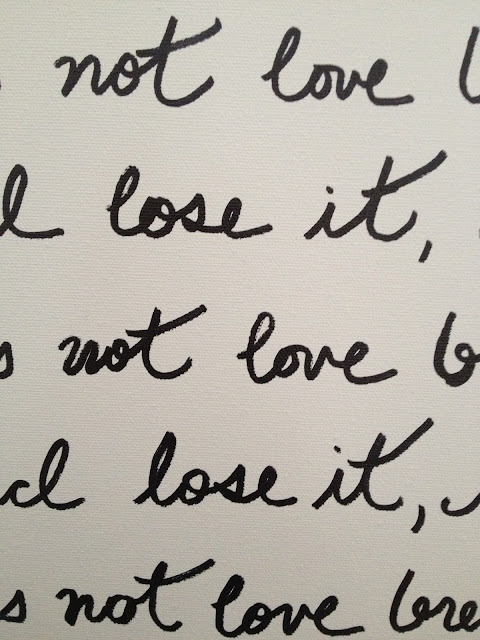 not love
lose it,
s not love b
lose it,
s not love bre